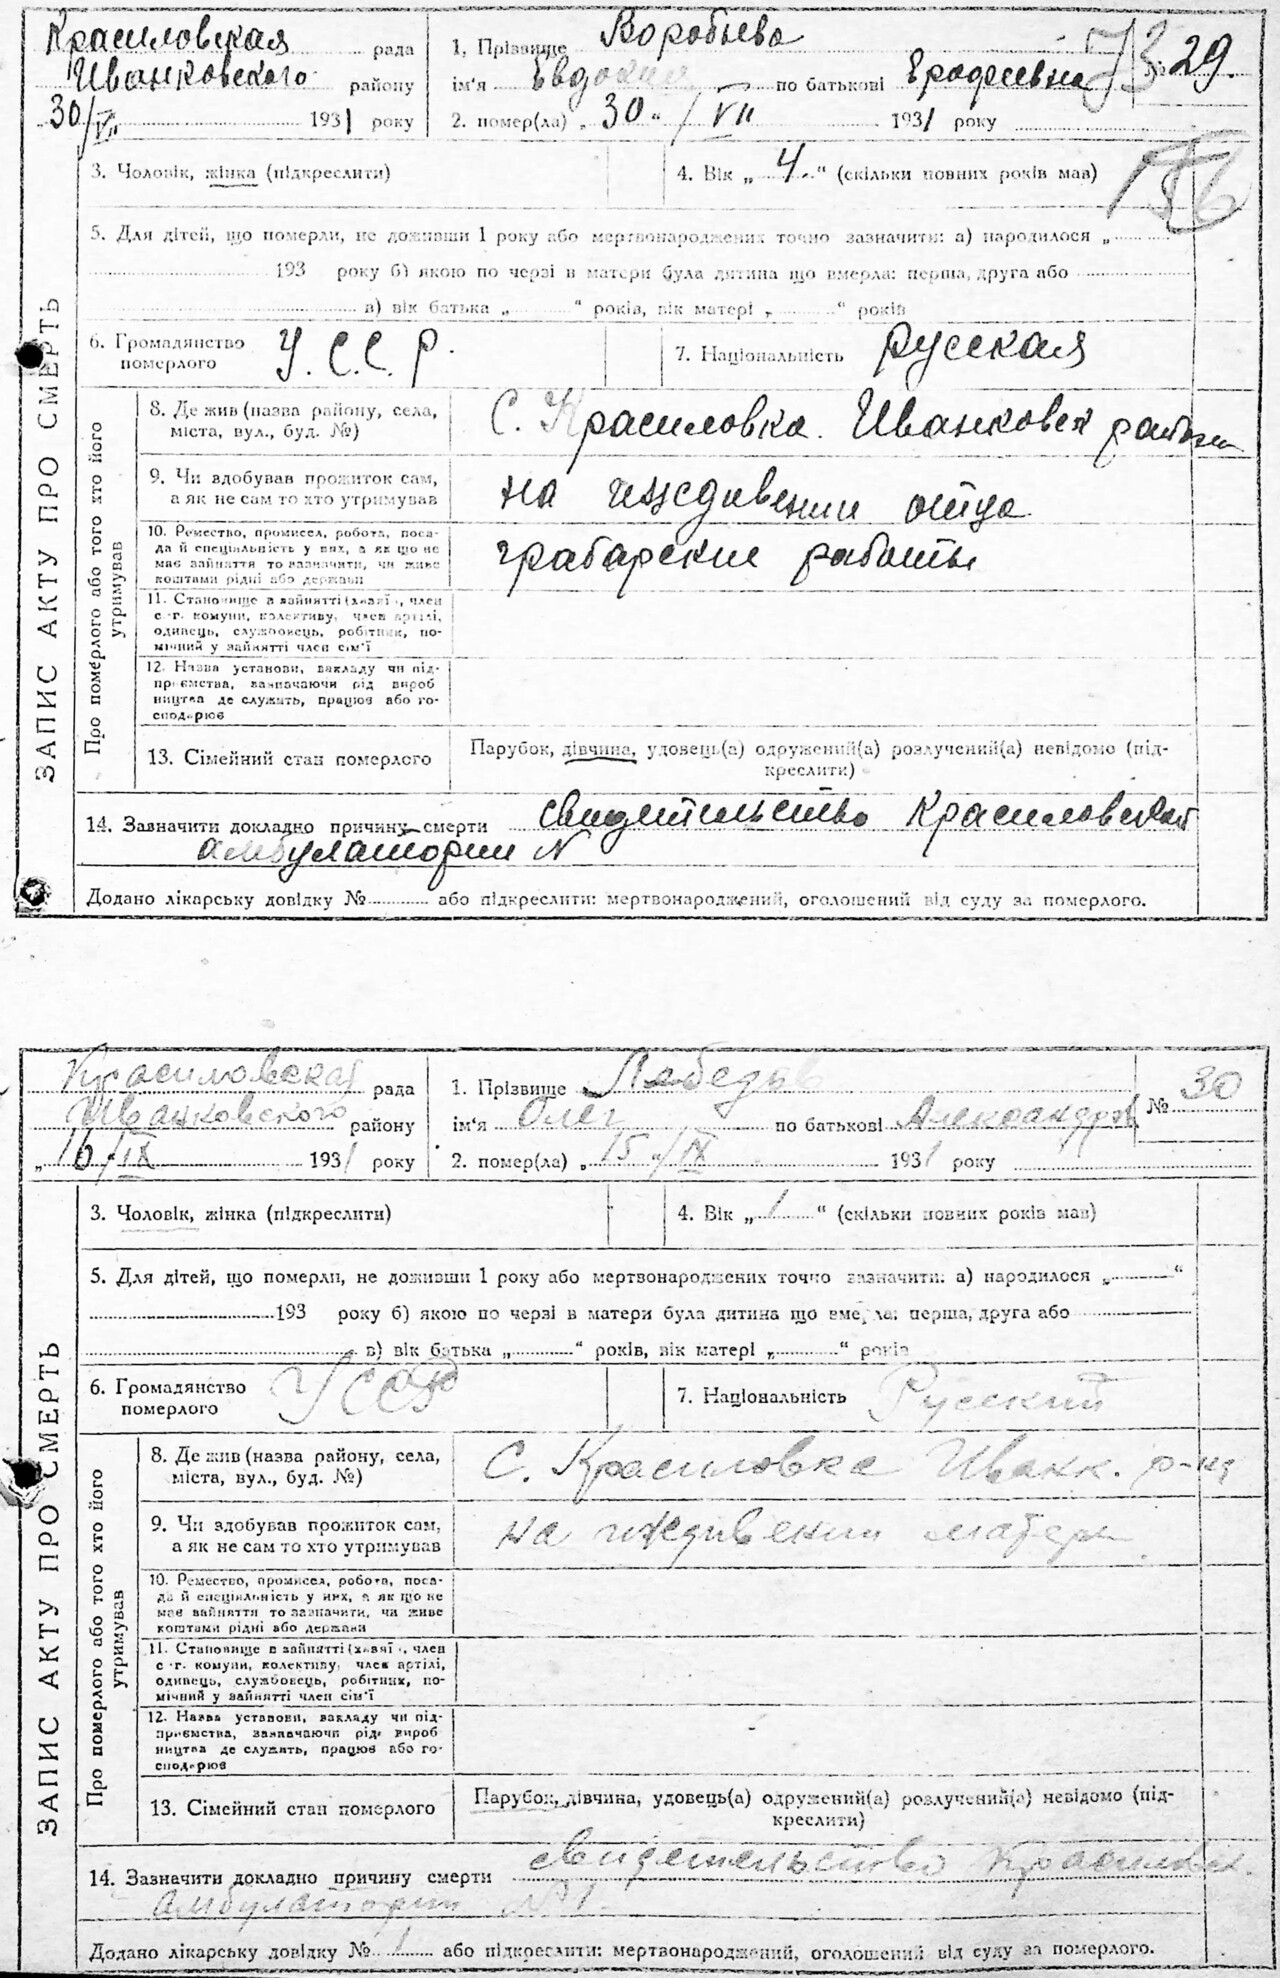 Красиловская рада
Иванковского району
30/VII 1931 року
1. Прізвище Воробьева
ім'я Евдокия по батькові Ерофеевна
2. помер(ла) „30“/VII 1931 року
73
№ 29.
156
3. Чоловік, жінка (підкреслити)
4. Вік „4.“ (скільки повних років мав)
5. Для дітей, що померли, не доживши 1 року або мертвонароджених точно зазначити: а) народилося „
193 року б) якою по черзі в матери була дитина що вмерла: перша, друга або
в) вік батька „ “ років, вік матері „ “ років
6. Громадянство померлого У.С.С.Р.
7. Національність русская
ЗАПИС АКТУ ПРО СМЕРТЬ
Про померлого або того хто його утримував
8. Де жив (назва району, села,
міста, вул., буд. №)
С. Красиловка Иванковск района
9. Чи здобував прожиток сам,
а як не сам то хто утримував
на иждивении отца
10. Ремество, промисел, робота, поса-
да й спеціальність у них, а як що не
має зайняття то зазначити, чи живе
коштами рідні або держави
грабарские работы
11. Становище в зайнятті (хазяї, член
с.-г. комуни, колективу, член артілі,
одинець, службовець, робітник, по-
мічний у зайнятті член сім'ї
12. Назва установи, закладу чи під-
приємства, зазначаючи рід вироб
ництва де служить, працює або го-
сподарює
13. Сімейний стан померлого
Парубок, дівчина, удовець(а) одружений(а) розлучений(а) невідомо (під-
креслити)
14. Зазначити докладно причину смерти свидетельство Красиловской
амбулатории №
Додано лікарську довідку № або підкреслити: мертвонароджений, оголошений від суду за померлого.
Красиловская рада
Иванковского району
„16/IX 1931 року
1. Прізвище Лебедев
ім'я Олег по батькові Александров
2. помер(ла) „15“/IX 1931 року
№ 30
3. Чоловік, жінка (підкреслити)
4. Вік „1“ (скільки повних років мав)
5. Для дітей, що померли, не доживши 1 року або мертвонароджених точно зазначити: а) народилося „ “
193 року б) якою по черзі в матери була дитина що вмерла: перша, друга або
в) вік батька „ “ років, вік матері „ “ років
6. Громадянство померлого УССР
7. Національність Русский
ЗАПИС АКТУ ПРО СМЕРТЬ
Про померлого або того хто його утримував
8. Де жив (назва району, села,
міста, вул., буд. №)
С. Красиловка Иванк. р-на
9. Чи здобував прожиток сам,
а як не сам то хто утримував
на иждивении матери
10. Ремество, промисел, робота, поса-
да й спеціальність у них, а як що не
має зайняття то зазначити, чи живе
коштами рідні або держави
11. Становище в зайнятті (хазяї, член
с.-г. комуни, колективу, член артілі,
одинець, службовець, робітник, по-
мічний у зайнятті член сім'ї
12. Назва установи, закладу чи під-
приємства, зазначаючи рід вироб
ництва де служить, працює або го-
сподарює
13. Сімейний стан померлого
Парубок, дівчина, удовець(а) одружений(а) розлучений(а) невідомо (під-
креслити)
14. Зазначити докладно причину смерти свидетельство Красиловск.
амбулатории №1.
Додано лікарську довідку № 1 або підкреслити: мертвонароджений, оголошений від суду за померлого.